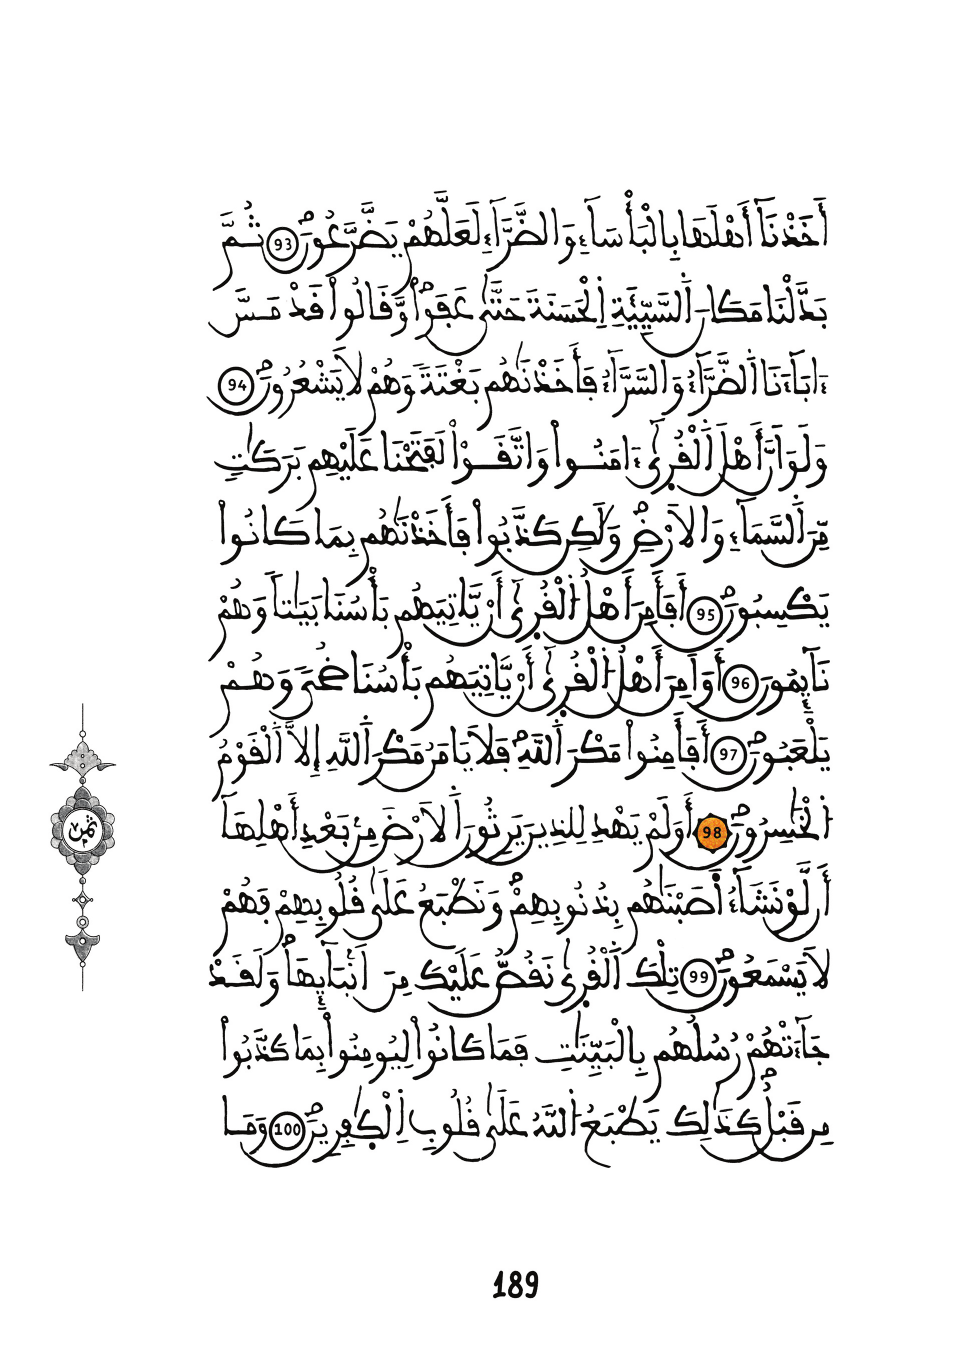 أَخَذْنَآ أَهْلَهَا بِالْبَأْسَآءِ وَالضَّرَّآءِ لَعَلَّهُمْ يَضَّرَّعُونَ 93 ثُمَّ
بَدَّلْنَا مَكَانَ اَ۬لسَّيِّئَةِ اِ۬لْحَسَنَةَ حَتَّىٰ عَفَواْ وَّقَالُواْ قَدْ مَسَّ
ءَابَآءَنَا اَ۬لضَّرَّآءُ وَالسَّرَّآءُ فَأَخَذْنَٰهُم بَغْتَةً وَهُمْ لَا يَشْعُرُونَ 94
وَلَوَ اَنَّ أَهْلَ اَ۬لْقُر۪ىٰٓ ءَامَنُواْ وَاتَّقَوْاْ لَفَتَحْنَا عَلَيْهِم بَرَكَٰتٍ
مِّنَ اَ۬لسَّمَآءِ وَالَارْضِ وَلَٰكِن كَذَّبُواْ فَأَخَذْنَٰهُم بِمَا كَانُواْ
يَكْسِبُونَ 95 أَفَأَمِنَ أَهْلُ اُ۬لْقُر۪ىٰٓ أَنْ يَّاتِيَهُم بَأْسُنَا بَيَٰتاً وَهُمْ
نَآئِمُونَ 96 أَوَ اَمِنَ أَهْلُ اُ۬لْقُر۪ىٰٓ أَنْ يَّاتِيَهُم بَأْسُنَا ضُحىً وَهُمْ
يَلْعَبُونَ 97 أَفَأَمِنُواْ مَكْرَ اَ۬للَّهِ فَلَا يَامَنُ مَكْرَ اَ۬للَّهِ إِلَّا اَ۬لْقَوْمُ
اُ۬لْخَٰسِرُونَ 98 أَوَلَمْ يَهْدِ لِلذِينَ يَرِثُونَ اَ۬لَارْضَ مِنۢ بَعْدِ أَهْلِهَآ
أَن لَّوْ نَشَآءُ اَ۬صَبْنَٰهُم بِذُنُوبِهِمْ وَنَطْبَعُ عَلَىٰ قُلُوبِهِمْ فَهُمْ
لَا يَسْمَعُونَ 99 تِلْكَ اَ۬لْقُر۪ىٰ نَقُصُّ عَلَيْكَ مِنَ اَنۢبَآئِهَا وَلَقَدْ
جَآءَتْهُمْ رُسُلُهُم بِالْبَيِّنَٰتِ فَمَا كَانُواْ لِيُومِنُواْ بِمَا كَذَّبُواْ
مِن قَبْلُ كَذَٰلِكَ يَطْبَعُ اُ۬للَّهُ عَلَىٰ قُلُوبِ اِ۬لْكٰ۪فِرِينَ 100 وَمَا
ثمن
189